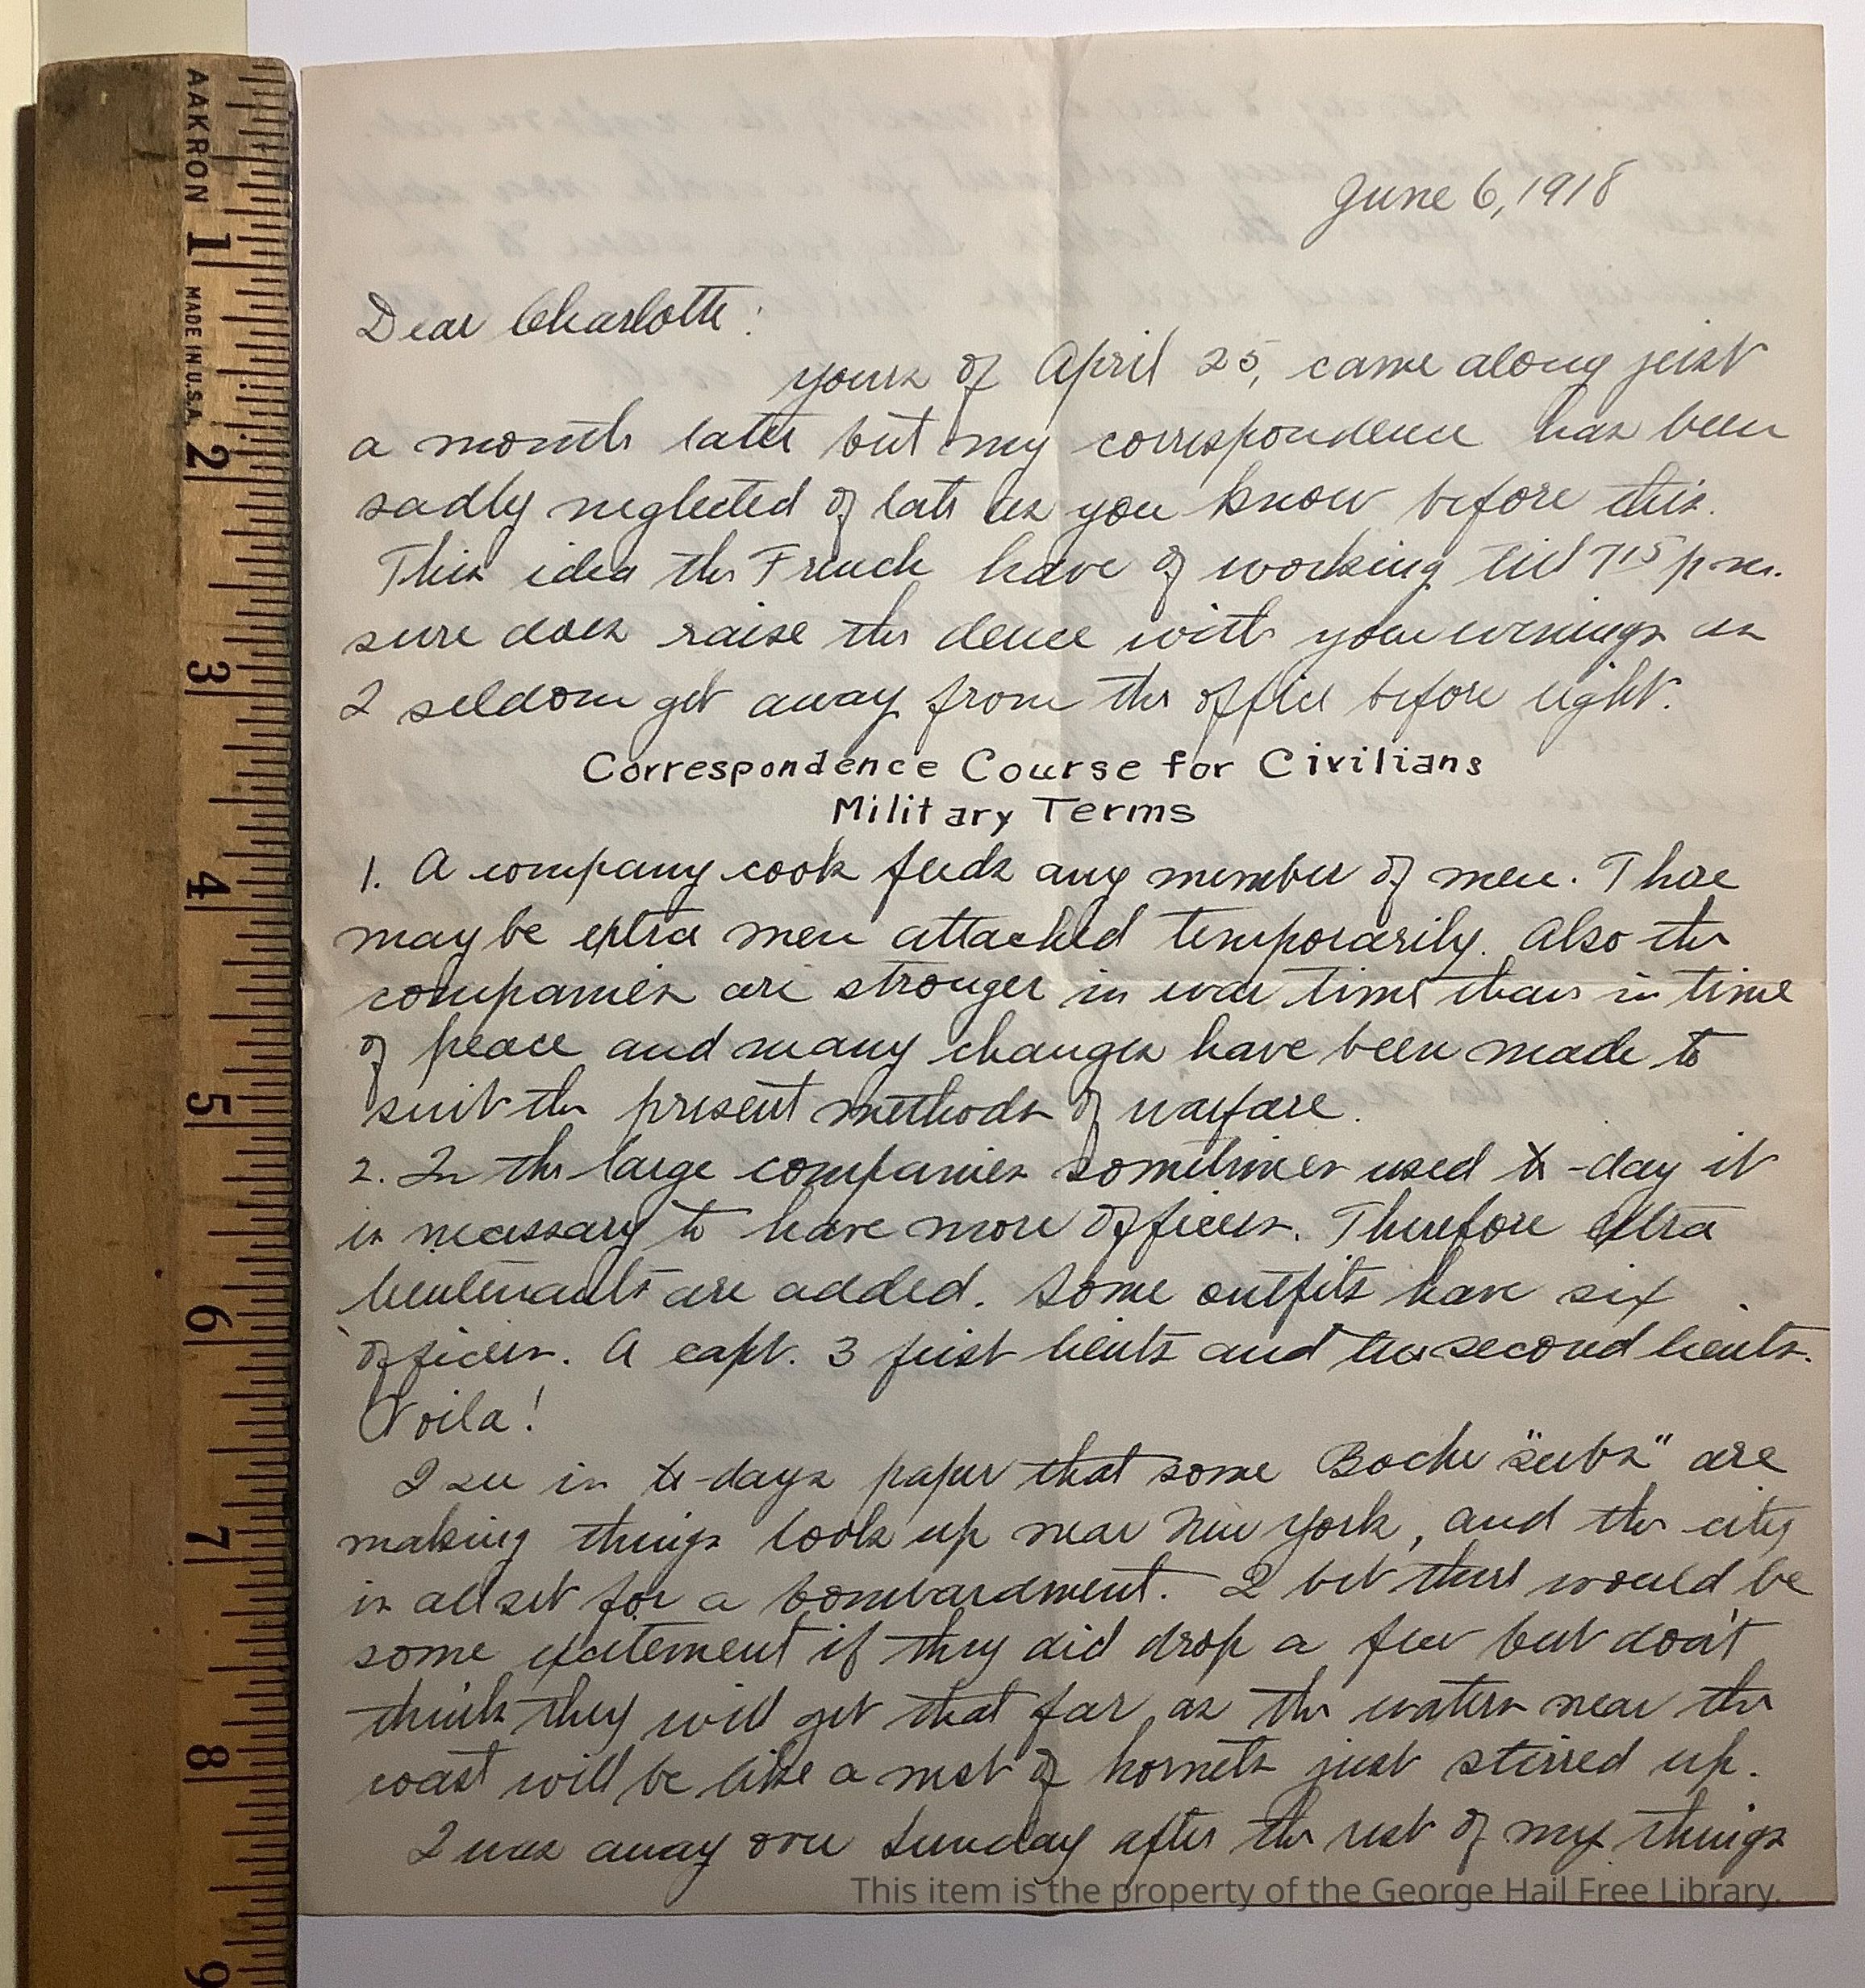 AAKRON
MADE IN U.S.A.
1
2
3
4
5
6
7
8
9
June 6, 1918
Dear Charlotte:
yours of April 25, came along just
a month later but my correspondence has been
sadly neglected of late as you know before this.
This idea the French have of working till 7 15 p.m.
sure does raise the deuce with your evenings as
I seldom get away from the office before eight.
Correspondence Course for Civilians
Military Terms
1. A company cook feeds any number of men. There
may be extra men attached temporarily. Also the
companies are stronger in war time than in time
of peace and many changes have been made to
suit the present methods of warfare.
2. In the large companies sometimes used to-day it
is necessary to have more officers. Therefore extra
lieutenants are added. Some outfits have six
officers. A capt. 3 first lieuts and two second lieuts.
Voila!
I see in to-days paper that some Boche "subs" are
making things look up near New York, and the city
is all set for a bombardment. I bet there would be
some excitement if they did drop a few but don't
think they will get that far as the waters near the
coast will be like a nest of hornets just stirred up.
I was away one Sunday after the rest of my things
This item is the property of the George Hail Free Library.